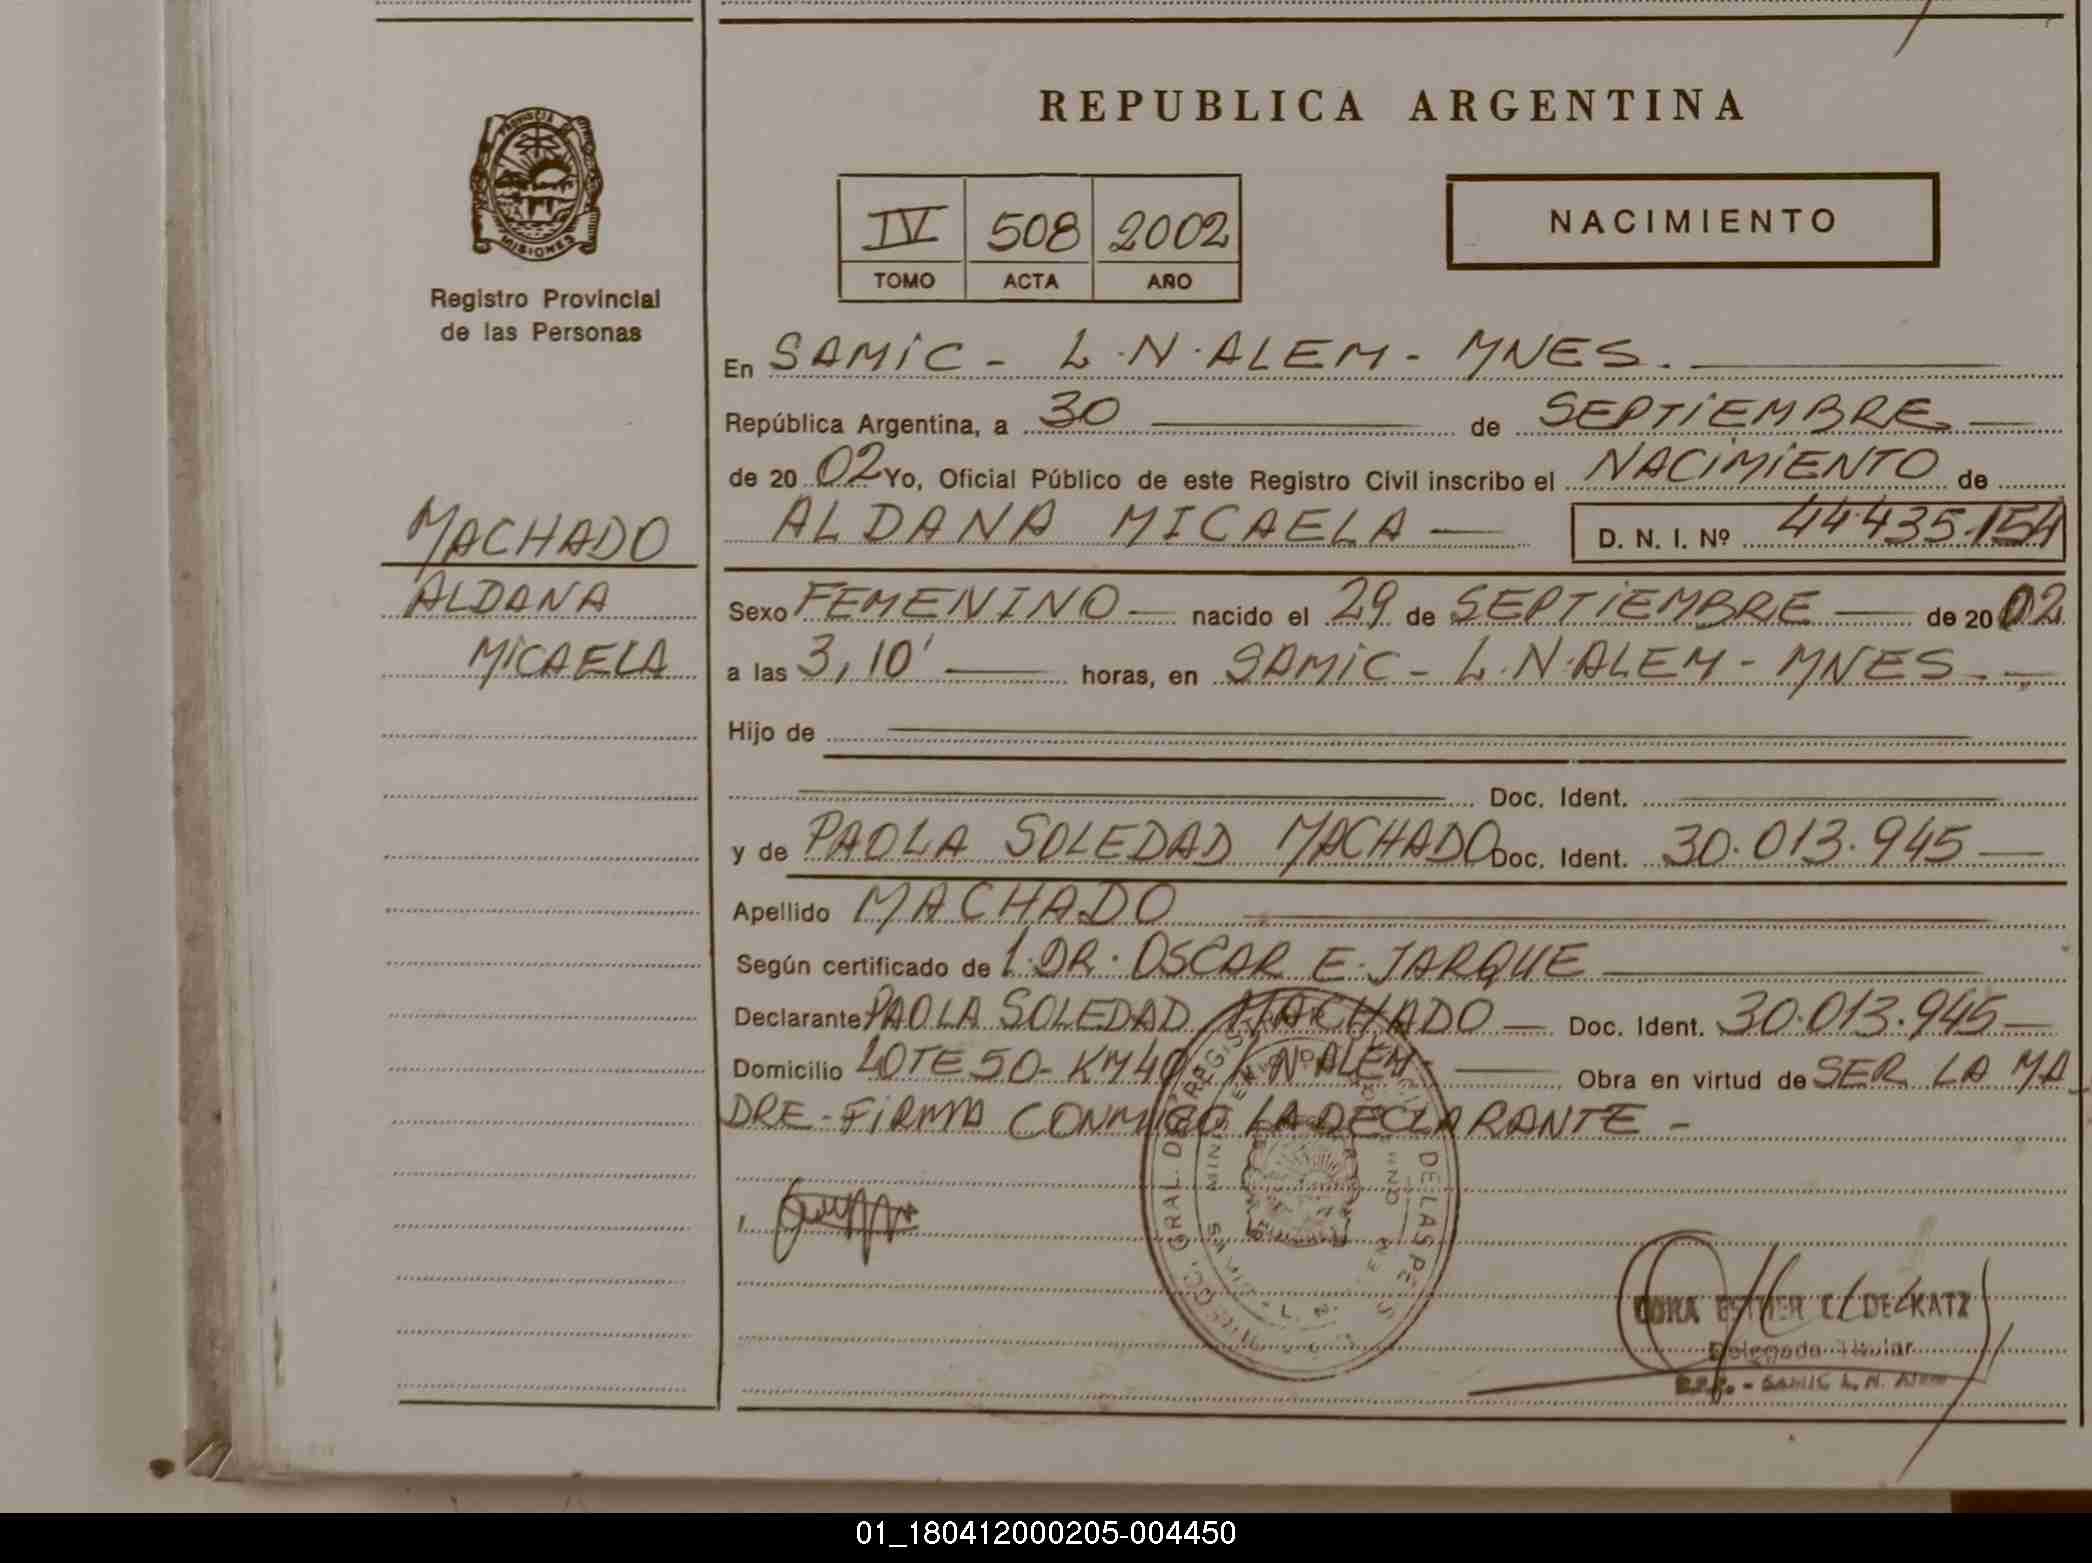 REPUBLICA ARGENTINA
PROVINCIA DE
MISIONES
Registro Provincial
de las Personas
IV 508 2002
TOMO ACTA AÑO
NACIMIENTO
En SAMIC - L.N.ALEM - MNES.
República Argentina, a 30 de SEPTIEMBRE
de 20 02 Yo, Oficial Público de este Registro Civil inscribo el NACIMIENTO de
ALDANA MICAELA D. N. I. Nº 44.435.154
MACHADO
ALDANA
MICAELA
Sexo FEMENINO nacido el 29 de SEPTIEMBRE de 20 02
a las 3,10' horas, en SAMIC - L.N.ALEM - MNES.
Hijo de
Doc. Ident.
y de PAOLA SOLEDAD MACHADO Doc. Ident. 30.013.945
Apellido MACHADO
Según certificado de 1.DR. OSCAR E. JARQUE
Declarante PAOLA SOLEDAD MACHADO Doc. Ident. 30.013.945
Domicilio LOTE 50 - KM 40 L.N.ALEM - Obra en virtud de SER LA MA
DRE - FIRMA CONMIGO LA DECLARANTE -
DE LAS PE
L. N.
ESTHER C. DE KATZ
Delegada Titular
SAMIC L. N. Alem
01_180412000205-004450